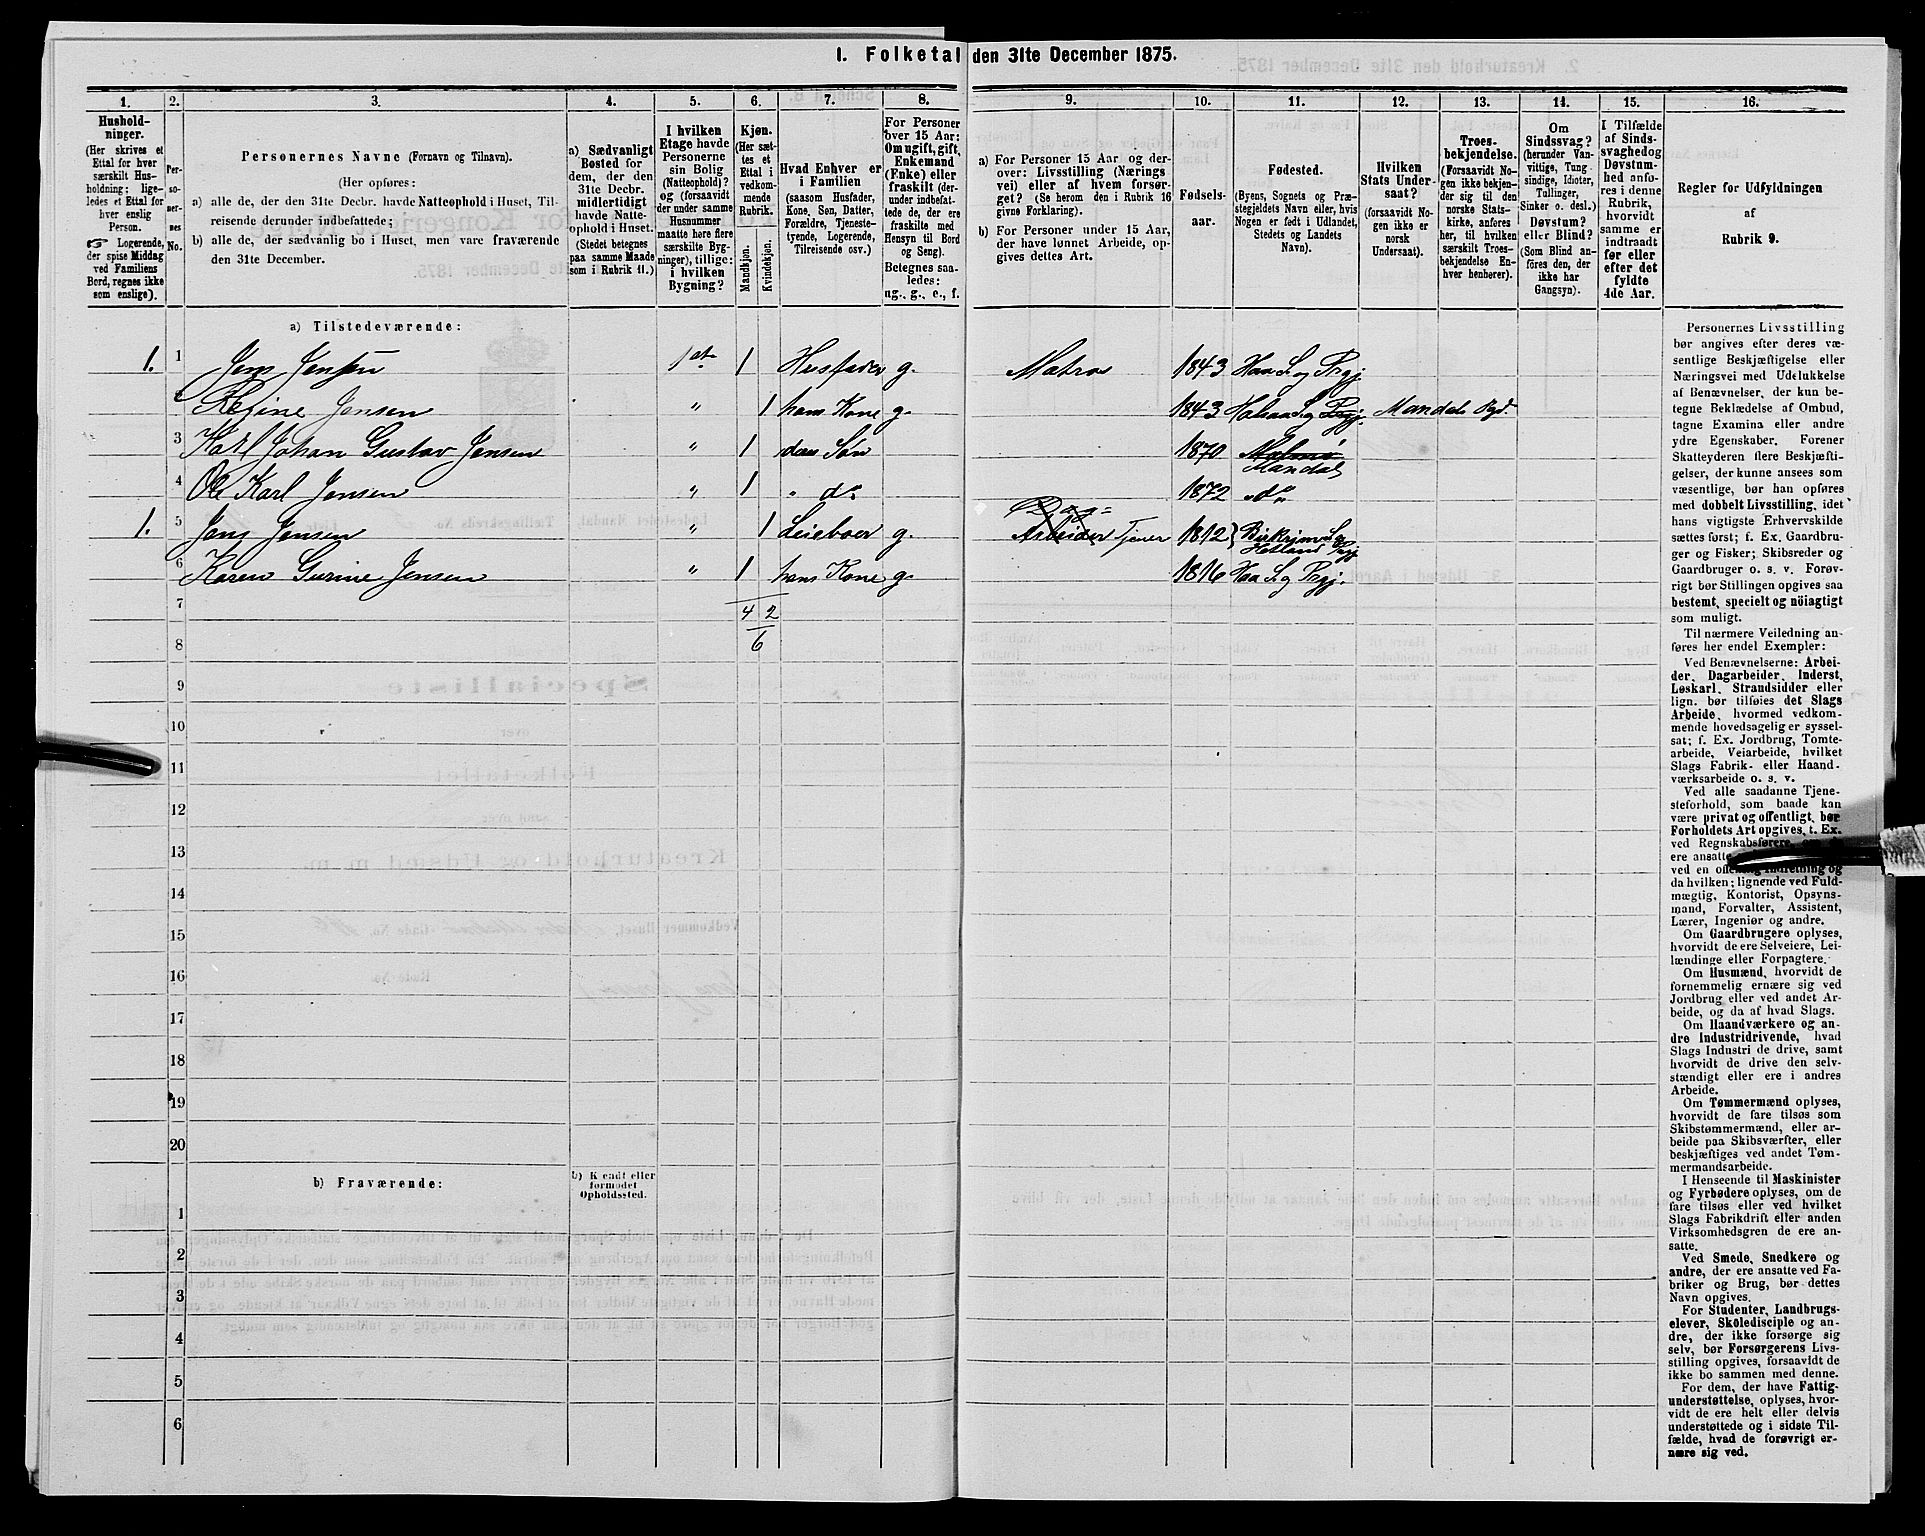 I. Folketal den 31te December 1875.
1. 2. 3. 4. 5. 6. 7. 8. 9. 10. 11. 12. 13. 14. 15. 16.
Hushold-
ninger.
(Her skrives et
Ettal for hver
særskilt Hus-
holdning; lige-
ledes et Ettal for
hver enslig
Person.
☞ Logerende,
der spise Middag
ved Familiens
Bord, regnes ikke
som enslige).
Per-
so-
ner-
nes
No.
Personernes Navne (Fornavn og Tilnavn).
(Her opføres:
a) alle de, der den 31te Decbr. havde Natteophold i Huset, Til-
reisende derunder indbefattede;
b) alle de, der sædvanlig bo i Huset, men vare fraværende
den 31te December.
a) Sædvanligt
Bosted for
dem, der den
31te Decbr.
midlertidigt
havde Natte-
ophold i Huset.
(Stedet betegnes
paa samme Maade
som i Rubrik 11.)
I hvilken
Etage havde
Personerne
sin Bolig
(Natteophold)?
(forsaavidt
der under samme
Husnummer
maatte høre flere
særskilte Byg-
ninger), tillige:
i hvilken
Bygning?
Kjøn.
(Her sæt-
tes et
Ettal i
vedkom-
mende
Rubrik.
Mandkjøn.
Kvindekjøn.
Hvad Enhver er
i Familien
(saasom Husfader,
Kone, Søn, Datter,
Forældre, Tjeneste-
tyende, Logerende,
Tilreisende osv.)
For Personer
over 15 Aar:
Om ugift, gift,
Enkemand
(Enke) eller
fraskilt (der-
under indbefat-
tede de, der ere
fraskilte med
Hensyn til Bord
og Seng).
Betegnes saa-
ledes:
ug., g., e., f.
a) For Personer 15 Aar og der-
over: Livsstilling (Nærings
vei) eller af hvem forsør-
get? (Se herom den i Rubrik 16
givne Forklaring).
b) For Personer under 15 Aar,
der have lønnet Arbeide, op-
gives dettes Art.
Fødsels-
aar.
Fødested.
(Byens, Sognets og Præ-
stegjeldets Navn eller, hvis
Nogen er født i Udlandet,
Stedets og Landets
Navn).
Hvilken
Stats Under-
saat?
(forsaavidt No-
gen ikke er
norsk
Undersaat).
Troes-
bekjendelse.
(Forsaavidt No-
gen ikke bekjen-
der sig til den
norske Stats-
kirke, anføres
her, til hvilken
særskilt Troes-
bekjendelse En-
hver henhører).
Om
Sindssvag?
(herunder Van-
vittige, Tung
sindige, Idioter,
Tullinger,
Sinker o. desl.)
Døvstum?
eller Blind?
(Som Blind an-
føres den, der
ikke har
Gangsyn).
I Tilfælde
af Sinds-
svaghed og
Døvstum-
hed anfø-
res i denne
Rubrik,
hvorvidt
samme er
indtraadt
før eller
efter det
fyldte
4de Aar.
Regler for Udfyldningen
af
Rubrik 9.
a) Tilstedeværende:
1. 1 Jens Jensen 1 et. 1 Husfader g. Matros 1843 Haa S. og Prgj.
2 Regine Jensen " 1 hans Kone g. 1843 Halsaa S. og Prgj. Mandals Pgd.
3 Karl Johan Gustav Jensen " 1 deres Søn 1870 Malmø Mandal
4 Ole Karl Jensen " 1 " do 1872 " do "
1. 5 Jens Jensen " 1 Leieboer g. Dag=Arbeider Tjener 1812 Birkrem S. Helland Prgj.
6 Karen Gurine Jensen " 1 hans Kone g. 1816 Haa S. og Prgj.
7 4 2
8 6
9
10
11
12
13
14
15
16
17
18
19
20
b) Fraværende:
b) Kjendt eller
formodet
Opholdssted.
1
2
3
4
5
6
Personernes Livsstilling
bør angives efter deres væ-
sentlige Beskjæftigelse eller
Næringsvei med Udelukkelse
af Benævnelser, der kun be-
tegne Beklædelse af Ombud,
tagne Examina eller andre
ydre Egenskaber. Forener
Skatteyderen flere Beskjæfti-
gelser, der kunne ansees som
væsentlige, bør han opføres
med dobbelt Livsstilling, idet
hans vigtigste Erhvervskilde
sættes først; f. Ex. Gaardbru-
ger og Fisker; Skibsreder og
Gaardbruger o. s. v. Forøv-
rigt bør Stillingen opgives saa
bestemt, specielt og nöiagtigt
som muligt.
Til nærmere Veiledning an-
føres her endel Exempler:
Ved Benævnelserne: Arbei-
der, Dagarbeider, Inderst,
Løskarl, Strandsidder eller
lign. bør tilføies det Slags
Arbeide, hvormed vedkom-
mende hovedsagelig er syssel-
sat; f. Ex. Jordbrug, Tomte-
arbeide, Veiarbeide, hvilket
Slags Fabrik- eller Haand-
værksarbeide o. s. v.
Ved alle saadanne Tjene-
steforhold, som baade kan
være privat og offentligt, bør
Forholdets Art opgives, t. Ex.
ved Regnskabsførere,
ere ansatte
ved en Indretning og
da hvilken; lignende ved Fuld-
mægtig, Kontorist, Opsyns-
mand, Forvalter, Assistent,
Lærer, Ingeniør og andre.
Om Gaardbrugere oplyses,
hvorvidt de ere Selveiere, Lei-
lændinge eller Forpagtere.
Om Husmænd, hvorvidt de
fornemmelig ernære sig ved
Jordbrug eller ved andet Ar-
beide, og da af hvad Slags.
Om Haandværkere og an-
dre Industridrivende, hvad
Slags Industri de drive, samt
hvorvidt de drive den selv-
stændigt eller ere i andres
Arbeide.
Om Tømmermænd oplyses,
hvorvidt de fare tilsøs som
Skibstømmermænd, eller ar-
beide paa Skibsværfter, eller
beskjæftiges ved andet Tøm-
mermandsarbeide.
I Henseende til Maskinister
og Fyrbødere oplyses, om de
fare tilsøs eller ved hvilket
Slags Fabrikdrift eller anden
Virksomhedsgren de ere an-
satte.
Ved Smede, Snedkere og
andre, der ere ansatte ved Fa-
briker og Brug, bør dettes
Navn opgives.
For Studenter, Landbrugs-
elever, Skoledisciple og an-
dre, der ikke forsørge sig
selv, bør Forsørgerens Livs-
stilling opgives, forsaavidt de
ikke bo sammen med denne.
For dem, der have Fattig-
understøttelse, oplyses, hvor-
vidt de ere helt eller delvis
understøttede og i sidste Til-
fælde, hvad de forøvrigt er-
nære sig ved.